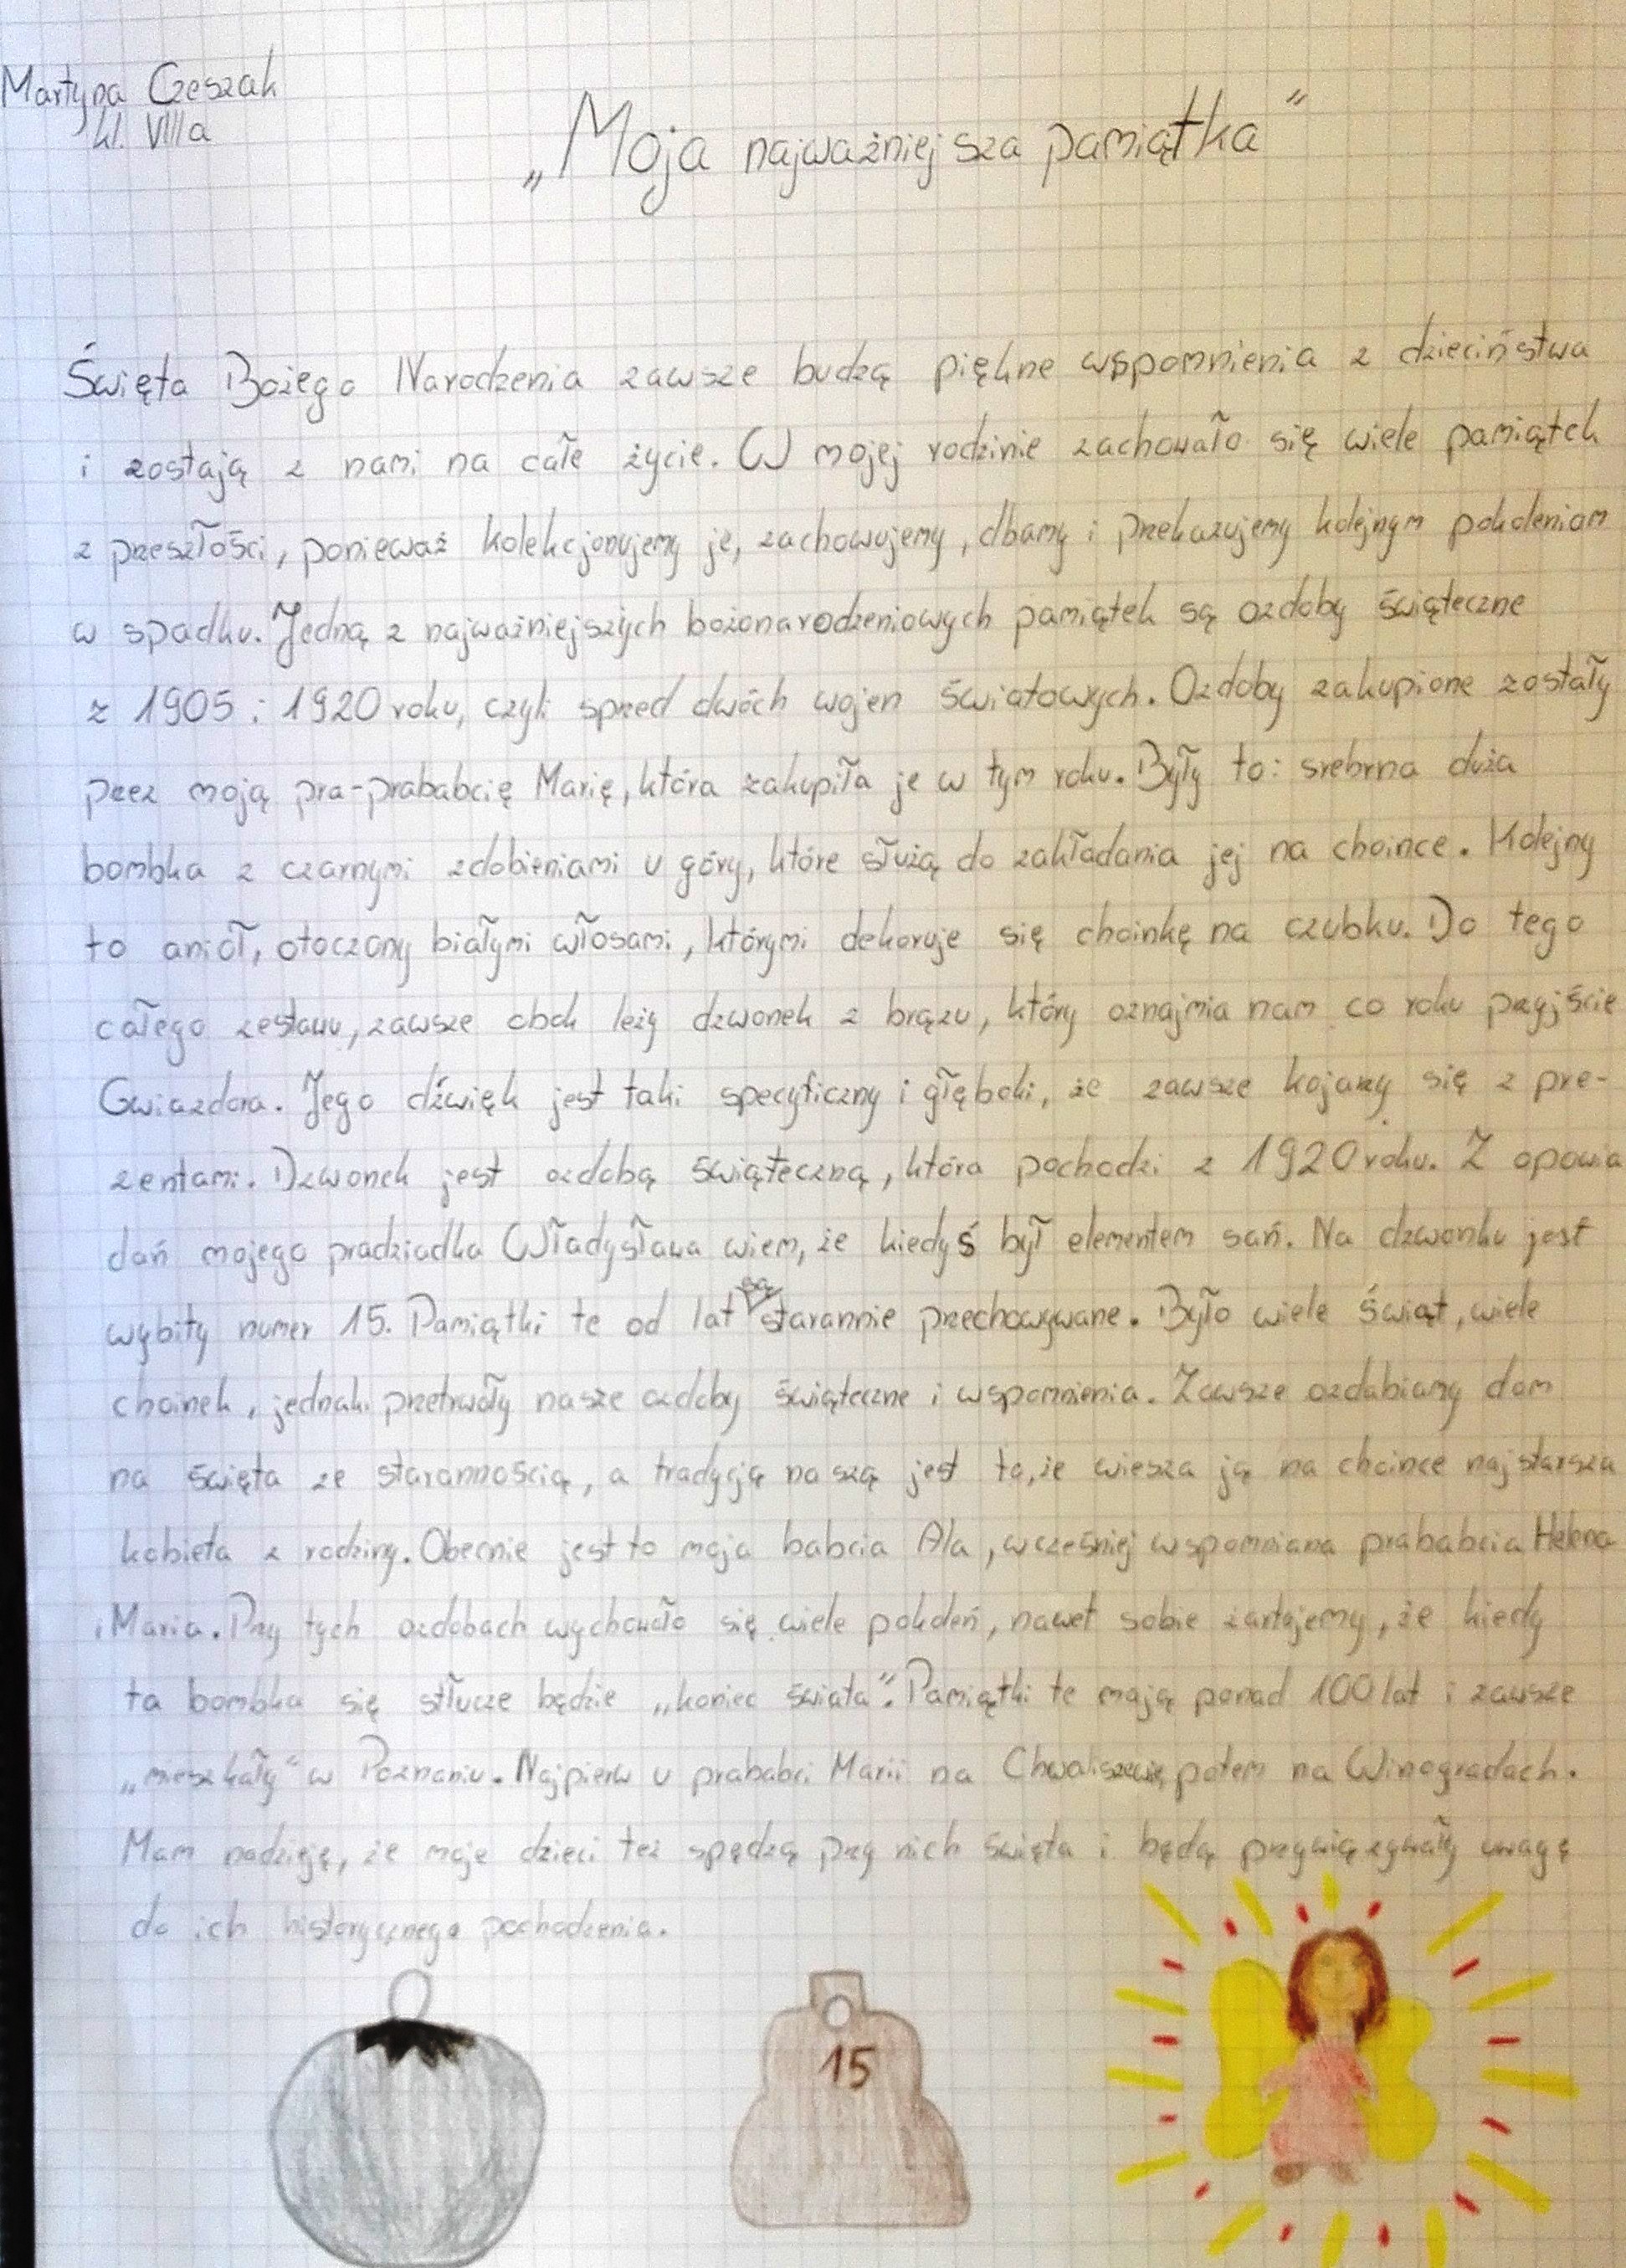 Martyna Czeszak
kl. VIIIa
„Moja najważniejsza pamiątka”
Święta Bożego Narodzenia zawsze budzą piękne wspomnienia z dzieciństwa
i zostają z nami na całe życie. W mojej rodzinie zachowało się wiele pamiątek
z przeszłości, ponieważ kolekcjonujemy je, zachowujemy, dbamy i przekazujemy kolejnym pokoleniom
w spadku. Jedną z najważniejszych bożonarodzeniowych pamiątek są ozdoby świąteczne
z 1905 i 1920 roku, czyli sprzed dwóch wojen światowych. Ozdoby zakupione zostały
przez moją pra-prababcię Marię, która zakupiła je w tym roku. Były to: srebrna duża
bombka z czarnymi zdobieniami u góry, które służą do zakładania jej na choince. Kolejny
to anioł, otoczony białymi włosami, którymi dekoruje się choinkę na czubku. Do tego
całego zestawu, zawsze obok leży dzwonek z brązu, który oznajmia nam co roku przyjście
Gwiazdora. Jego dźwięk jest taki specyficzny i głęboki, że zawsze kojarzy się z pre-
zentami. Dzwonek jest ozdobą świąteczną, która pochodzi z 1920 roku. Z opowia
dań mojego pradziadka Władysława wiem, że kiedyś był elementem sań. Na dzwonku jest
wybity numer 15. Pamiątki te od lat są starannie przechowywane. Było wiele świąt, wiele
choinek, jednak przetrwały nasze ozdoby świąteczne i wspomnienia. Zawsze ozdabiamy dom
na święta ze starannością, a tradycją naszą jest to, że wiesza ją na choince najstarsza
kobieta z rodziny. Obecnie jest to moja babcia Ala, wcześniej wspomniana prababcia Helena
i Maria. Przy tych ozdobach wychowało się wiele pokoleń, nawet sobie żartujemy, że kiedy
ta bombka się stłucze będzie „koniec świata”. Pamiątki te mają ponad 100 lat i zawsze
„mieszkały” w Poznaniu. Najpierw u prababci Marii na Chwaliszewie, potem na Winogradach.
Mam nadzieję, że moje dzieci też spędzą przy nich święta i będą przywiązywały uwagę
do ich historycznego pochodzenia.
15